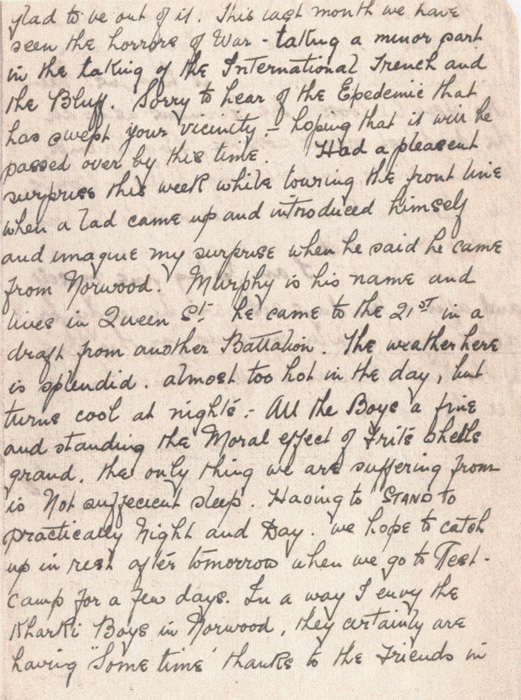 glad to be out of it. This last month we have
seen the horrors of War - taking a minor part
in the taking of the International Trench and
the Bluff. Sorry to hear of the Epedemic that
has swept your vicinity - hoping that it will be
passed over by this time. Had a pleasent
surprise this week while touring the front line
when a lad came up and introduced himself
and imagine my surprise when he said he came
from Norwood. Murphy is his name and
lives in Queen St. he came to the 21ST in a
draft from another Battalion. The weather here
is splendid. almost too hot in the day, but
turns cool at nights:- All the Boys a fine
and standing the Moral effect of Frits Shells
grand, the only thing we are suffering from
is Not suffecient sleep. Having to STAND TO
practically Night and Day. we hope to catch
up in rest after tomorrow when we go to Rest-
camp for a few days. In a way I envy the
Kharki Boys in Norwood, they certainly are
having "Some time" thanks to the Friends in